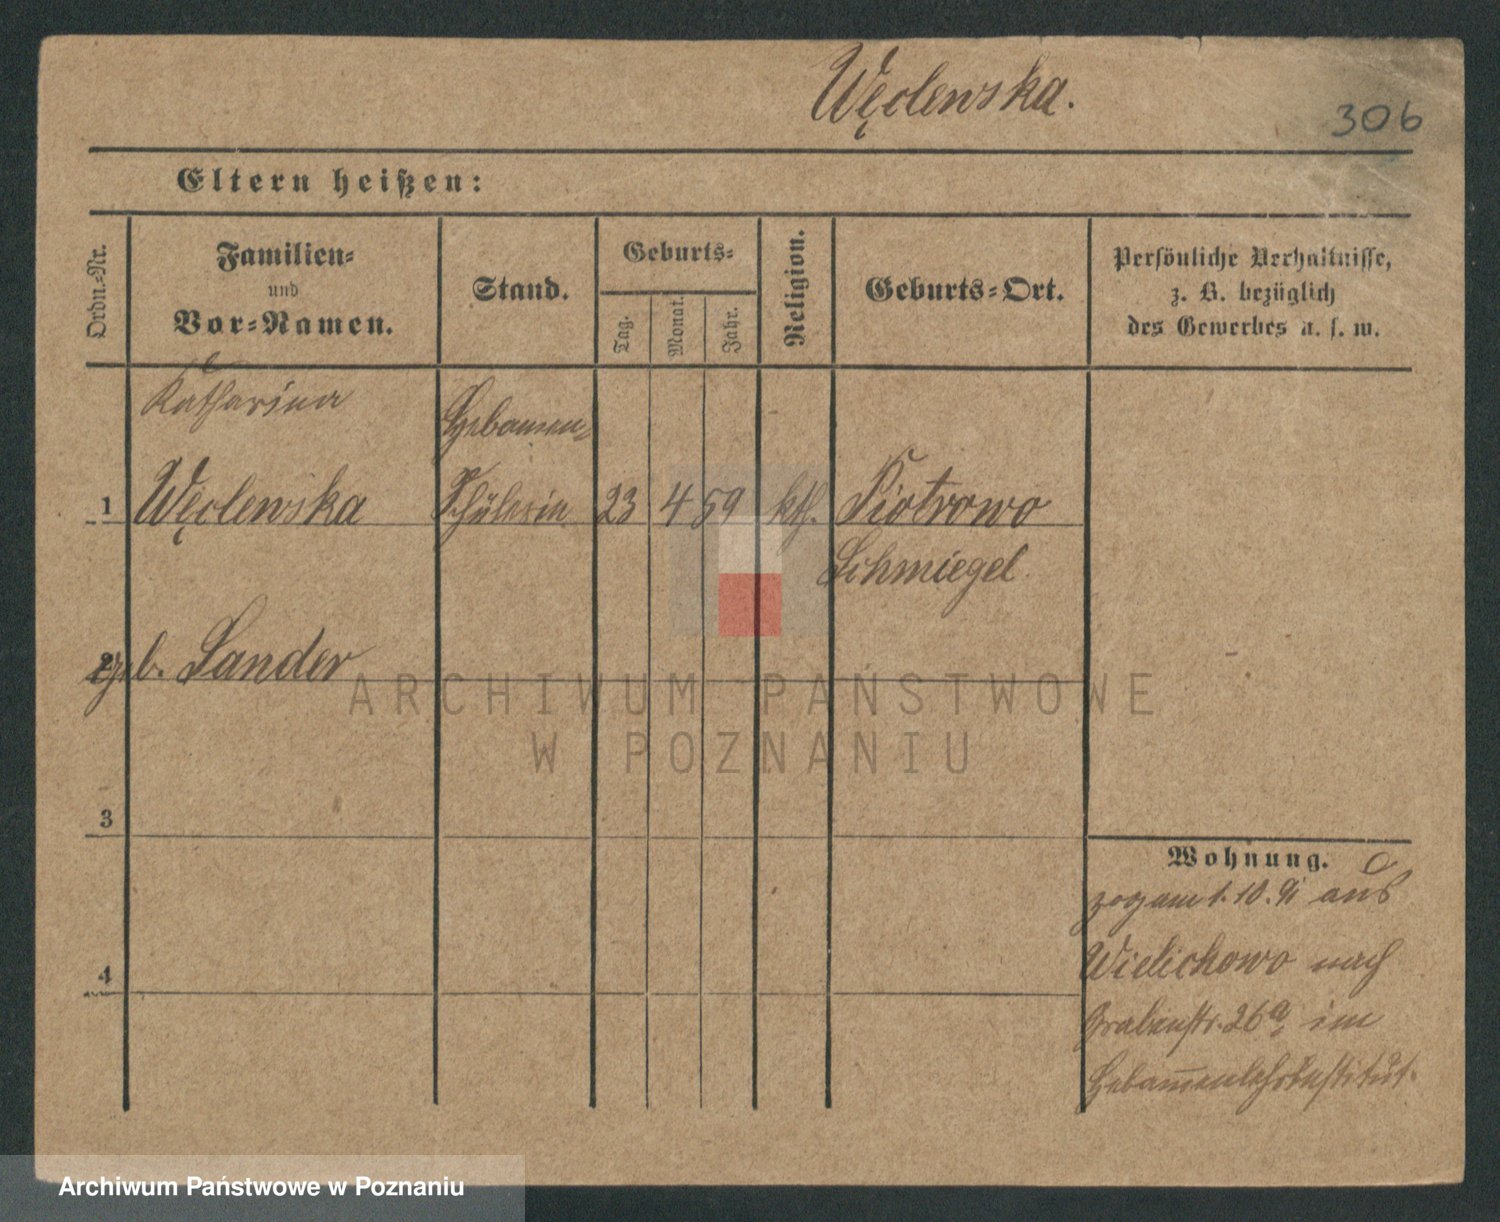 Węclewska.
306
Eltern heißen:
Ordn.-Nr.
Familien-
und
Vor-Namen.
Stand.
Geburts-
Tag.
Monat.
Jahr.
Religion.
Geburts-Ort.
Persönliche Verhältnisse,
z. B. bezüglich
des Gewerbes u. s. w.
Katharina
Hebamen-
1 Węclewska Schülerin 23 4 59 kth. Piotrowo
Schmiegel
2 geb. Sander
3
4
Wohnung.
zog am 1.10.91 aus
Wielichowo nach
Grabenstr. 26a im
Hebam̄enlehrinstitut.
ARCHIWUM PAŃSTWOWE
W POZNANIU
Archiwum Państwowe w Poznaniu